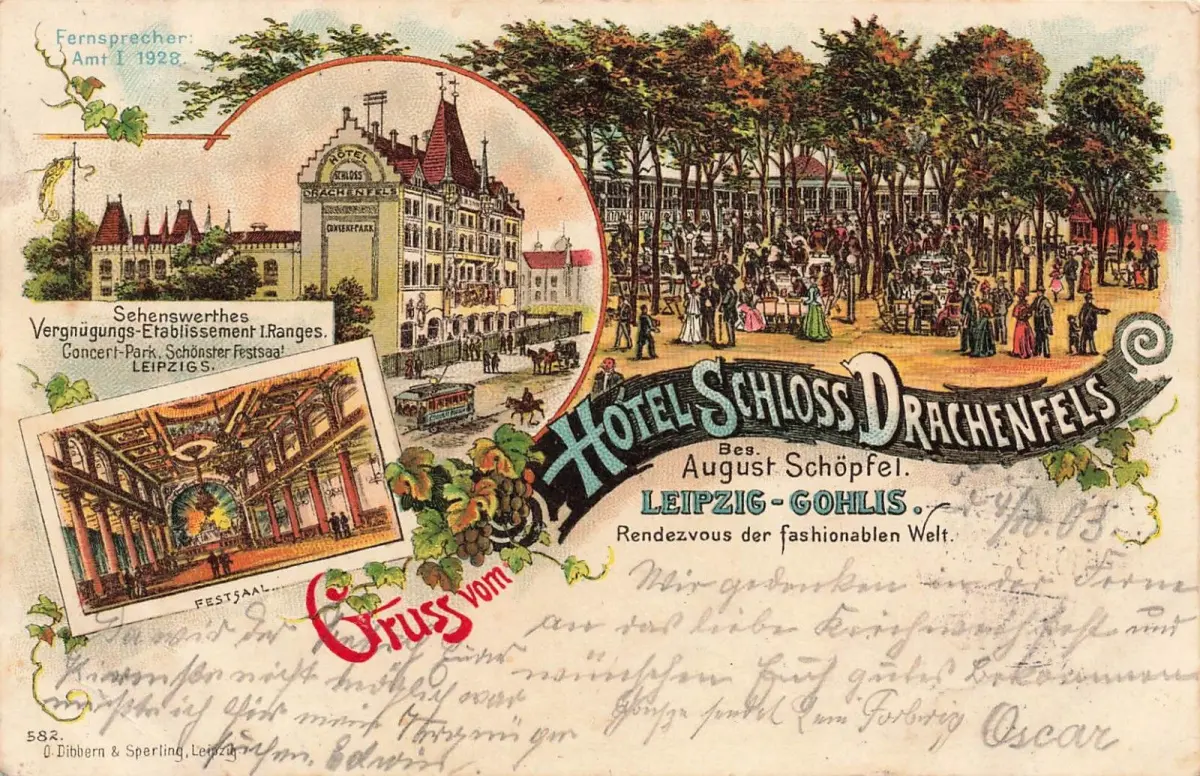 Fernsprecher:
Amt I 1928.
HÔTEL
SCHLOSS
DRACHENFELS
CONCERT-PARK
Sehenswerthes
Vergnügungs-Etablissement I. Ranges.
Concert-Park. Schönster Festsaal
LEIPZIGS.
FESTSAAL.
HÔTEL SCHLOSS DRACHENFELS
Bes.
August Schöpfel.
LEIPZIG-GOHLIS.
Rendezvous der fashionablen Welt.
Gruss vom
Wir gedenken in der Ferne
an das liebe Kirchweihfest und
wünschen Euch gutes Bekommen
sendet
Oscar
Da wir der
nicht möglich war
ich hier mein Vergnügen
suchen. Edwin
582.
O. Dibbern & Sperling, Leipzig.